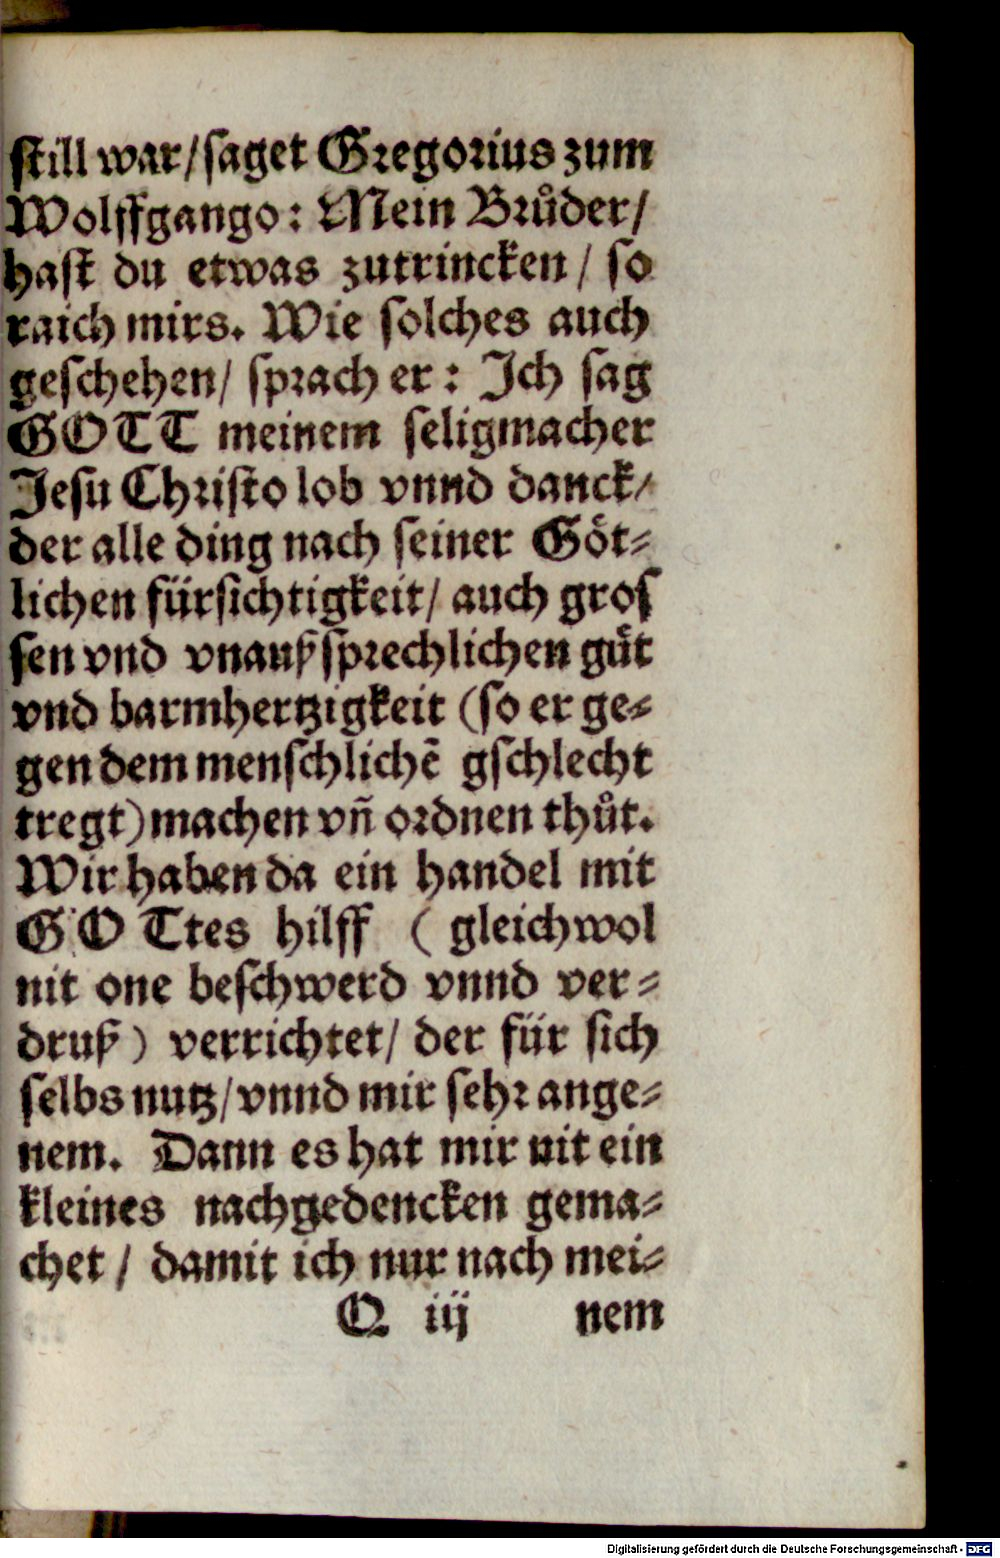 still war/ saget Gregorius zum
Wolffgango: Mein Bruͦder/
hast du etwas zutrincken/ so
raich mirs. Wie solches auch
geschehen/ sprach er: Jch sag
GOTT meinem seligmacher
Jesu Christo lob vnnd danck/
der alle ding nach seiner Goͤt-
lichen fürsichtigkeit/ auch gros
sen vnd vnaußsprechlichen guͤt
vnd barmhertzigkeit (so er ge-
gen dem menschlichẽ gschlecht
tregt) machen vñ ordnen thuͦt.
Wir haben da ein handel mit
GOTtes hilff (gleichwol
nit one beschwerd vnnd ver-
druß) verrichtet/ der für sich
selbs nutz/ vnnd mir sehr ange-
nem. Dann es hat mir nit ein
kleines nachgedencken gema-
chet/ damit ich nur nach mei-
Q iij nem
Digitalisierung gefördert durch die Deutsche Forschungsgemeinschaft - DFG